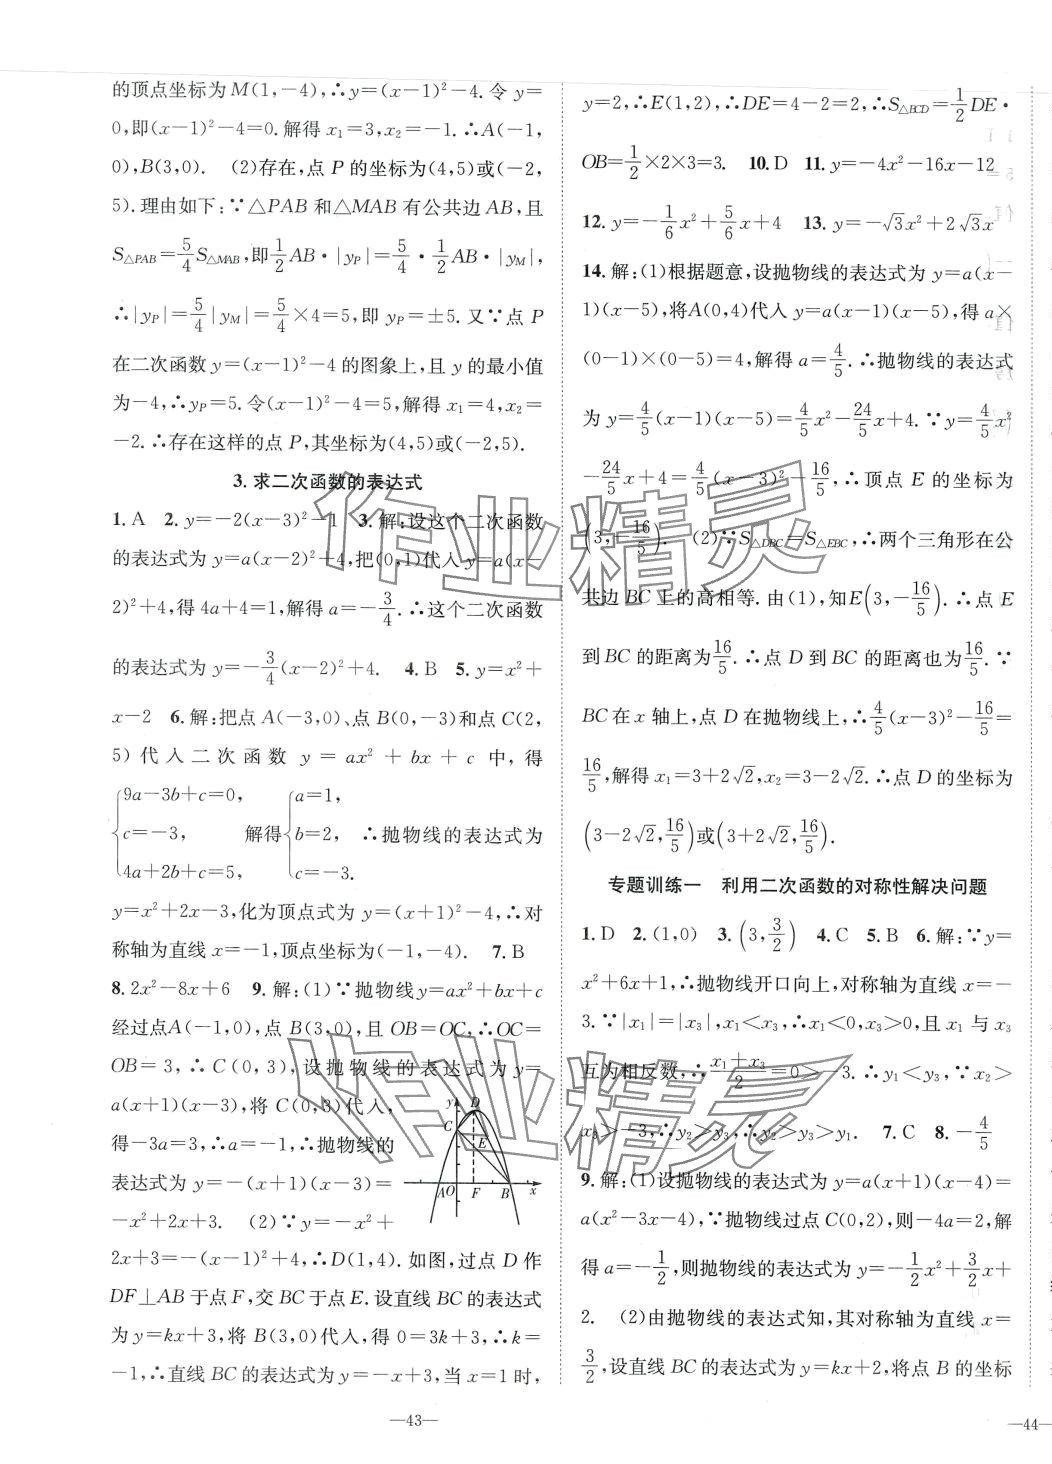 的顶点坐标为M(1,-4),∴y=(x-1)²-4.令y=
0,即(x-1)²-4=0.解得x₁=3,x₂=-1.∴A(-1,
0),B(3,0). (2)存在,点P的坐标为(4,5)或(-2,
5).理由如下:∵△PAB和△MAB有公共边AB,且
S△PAB=5/4S△MAB,即1/2AB·|yP|=5/4·1/2AB·|yM|,
∴|yP|=5/4|yM|=5/4×4=5,即yP=±5.又∵点P
在二次函数y=(x-1)²-4的图象上,且y的最小值
为-4,∴yP=5.令(x-1)²-4=5,解得x₁=4,x₂=
-2.∴存在这样的点P,其坐标为(4,5)或(-2,5).
3.求二次函数的表达式
1.A 2.y=-2(x-3)²-1 3.解:设这个二次函数
的表达式为y=a(x-2)²+4,把(0,1)代入y=a(x-
2)²+4,得4a+4=1,解得a=-3/4.∴这个二次函数
的表达式为y=-3/4(x-2)²+4. 4.B 5.y=x²+
x-2 6.解:把点A(-3,0)、点B(0,-3)和点C(2,
5)代入二次函数y=ax²+bx+c中,得
{9a-3b+c=0, c=-3, 4a+2b+c=5, 解得{a=1, b=2, c=-3. ∴抛物线的表达式为
y=x²+2x-3,化为顶点式为y=(x+1)²-4,∴对
称轴为直线x=-1,顶点坐标为(-1,-4). 7.B
8.2x²-8x+6 9.解:(1)∵抛物线y=ax²+bx+c
经过点A(-1,0),点B(3,0),且OB=OC,∴OC=
OB=3,∴C(0,3),设抛物线的表达式为y=
a(x+1)(x-3),将C(0,3)代入,
得-3a=3,∴a=-1,∴抛物线的
表达式为y=-(x+1)(x-3)=
-x²+2x+3. (2)∵y=-x²+
2x+3=-(x-1)²+4,∴D(1,4).如图,过点D作
DF⊥AB于点F,交BC于点E.设直线BC的表达式
为y=kx+3,将B(3,0)代入,得0=3k+3,∴k=
-1,∴直线BC的表达式为y=-x+3,当x=1时,
y
D
C
E
A
O
F
B
x
—43—
y=2,∴E(1,2),∴DE=4-2=2,∴S△BCD=1/2DE·
OB=1/2×2×3=3. 10.D 11.y=-4x²-16x-12
12.y=-1/6x²+5/6x+4 13.y=-√3x²+2√3x
14.解:(1)根据题意,设抛物线的表达式为y=a(x-
1)(x-5),将A(0,4)代入y=a(x-1)(x-5),得a×
(0-1)×(0-5)=4,解得a=4/5.∴抛物线的表达式
为y=4/5(x-1)(x-5)=4/5x²-24/5x+4.∵y=4/5x²
-24/5x+4=4/5(x-3)²-16/5,∴顶点E的坐标为
(3,-16/5). (2)∵S△DBC=S△EBC,∴两个三角形在公
共边BC上的高相等.由(1),知E(3,-16/5).∴点E
到BC的距离为16/5.∴点D到BC的距离也为16/5.∵
BC在x轴上,点D在抛物线上,∴4/5(x-3)²-16/5=
16/5,解得x₁=3+2√2,x₂=3-2√2.∴点D的坐标为
(3-2√2,16/5)或(3+2√2,16/5).
专题训练一 利用二次函数的对称性解决问题
1.D 2.(1,0) 3.(3,3/2) 4.C 5.B 6.解:∵y=
x²+6x+1,∴抛物线开口向上,对称轴为直线x=-
3.∵|x₁|=|x₃|,x₁<x₃,∴x₁<0,x₃>0,且x₁与x₃
互为相反数,∴(x₁+x₃)/2=0>-3.∴y₁<y₃,∵x₂>
x₃>-3,∴y₂>y₃,∴y₂>y₃>y₁. 7.C 8.-4/5
9.解:(1)设抛物线的表达式为y=a(x+1)(x-4)=
a(x²-3x-4),∵抛物线过点C(0,2),则-4a=2,解
得a=-1/2,则抛物线的表达式为y=-1/2x²+3/2x+
2. (2)由抛物线的表达式知,其对称轴为直线x=
3/2,设直线BC的表达式为y=kx+2,将点B的坐标
—44—
作业精灵
作业精灵